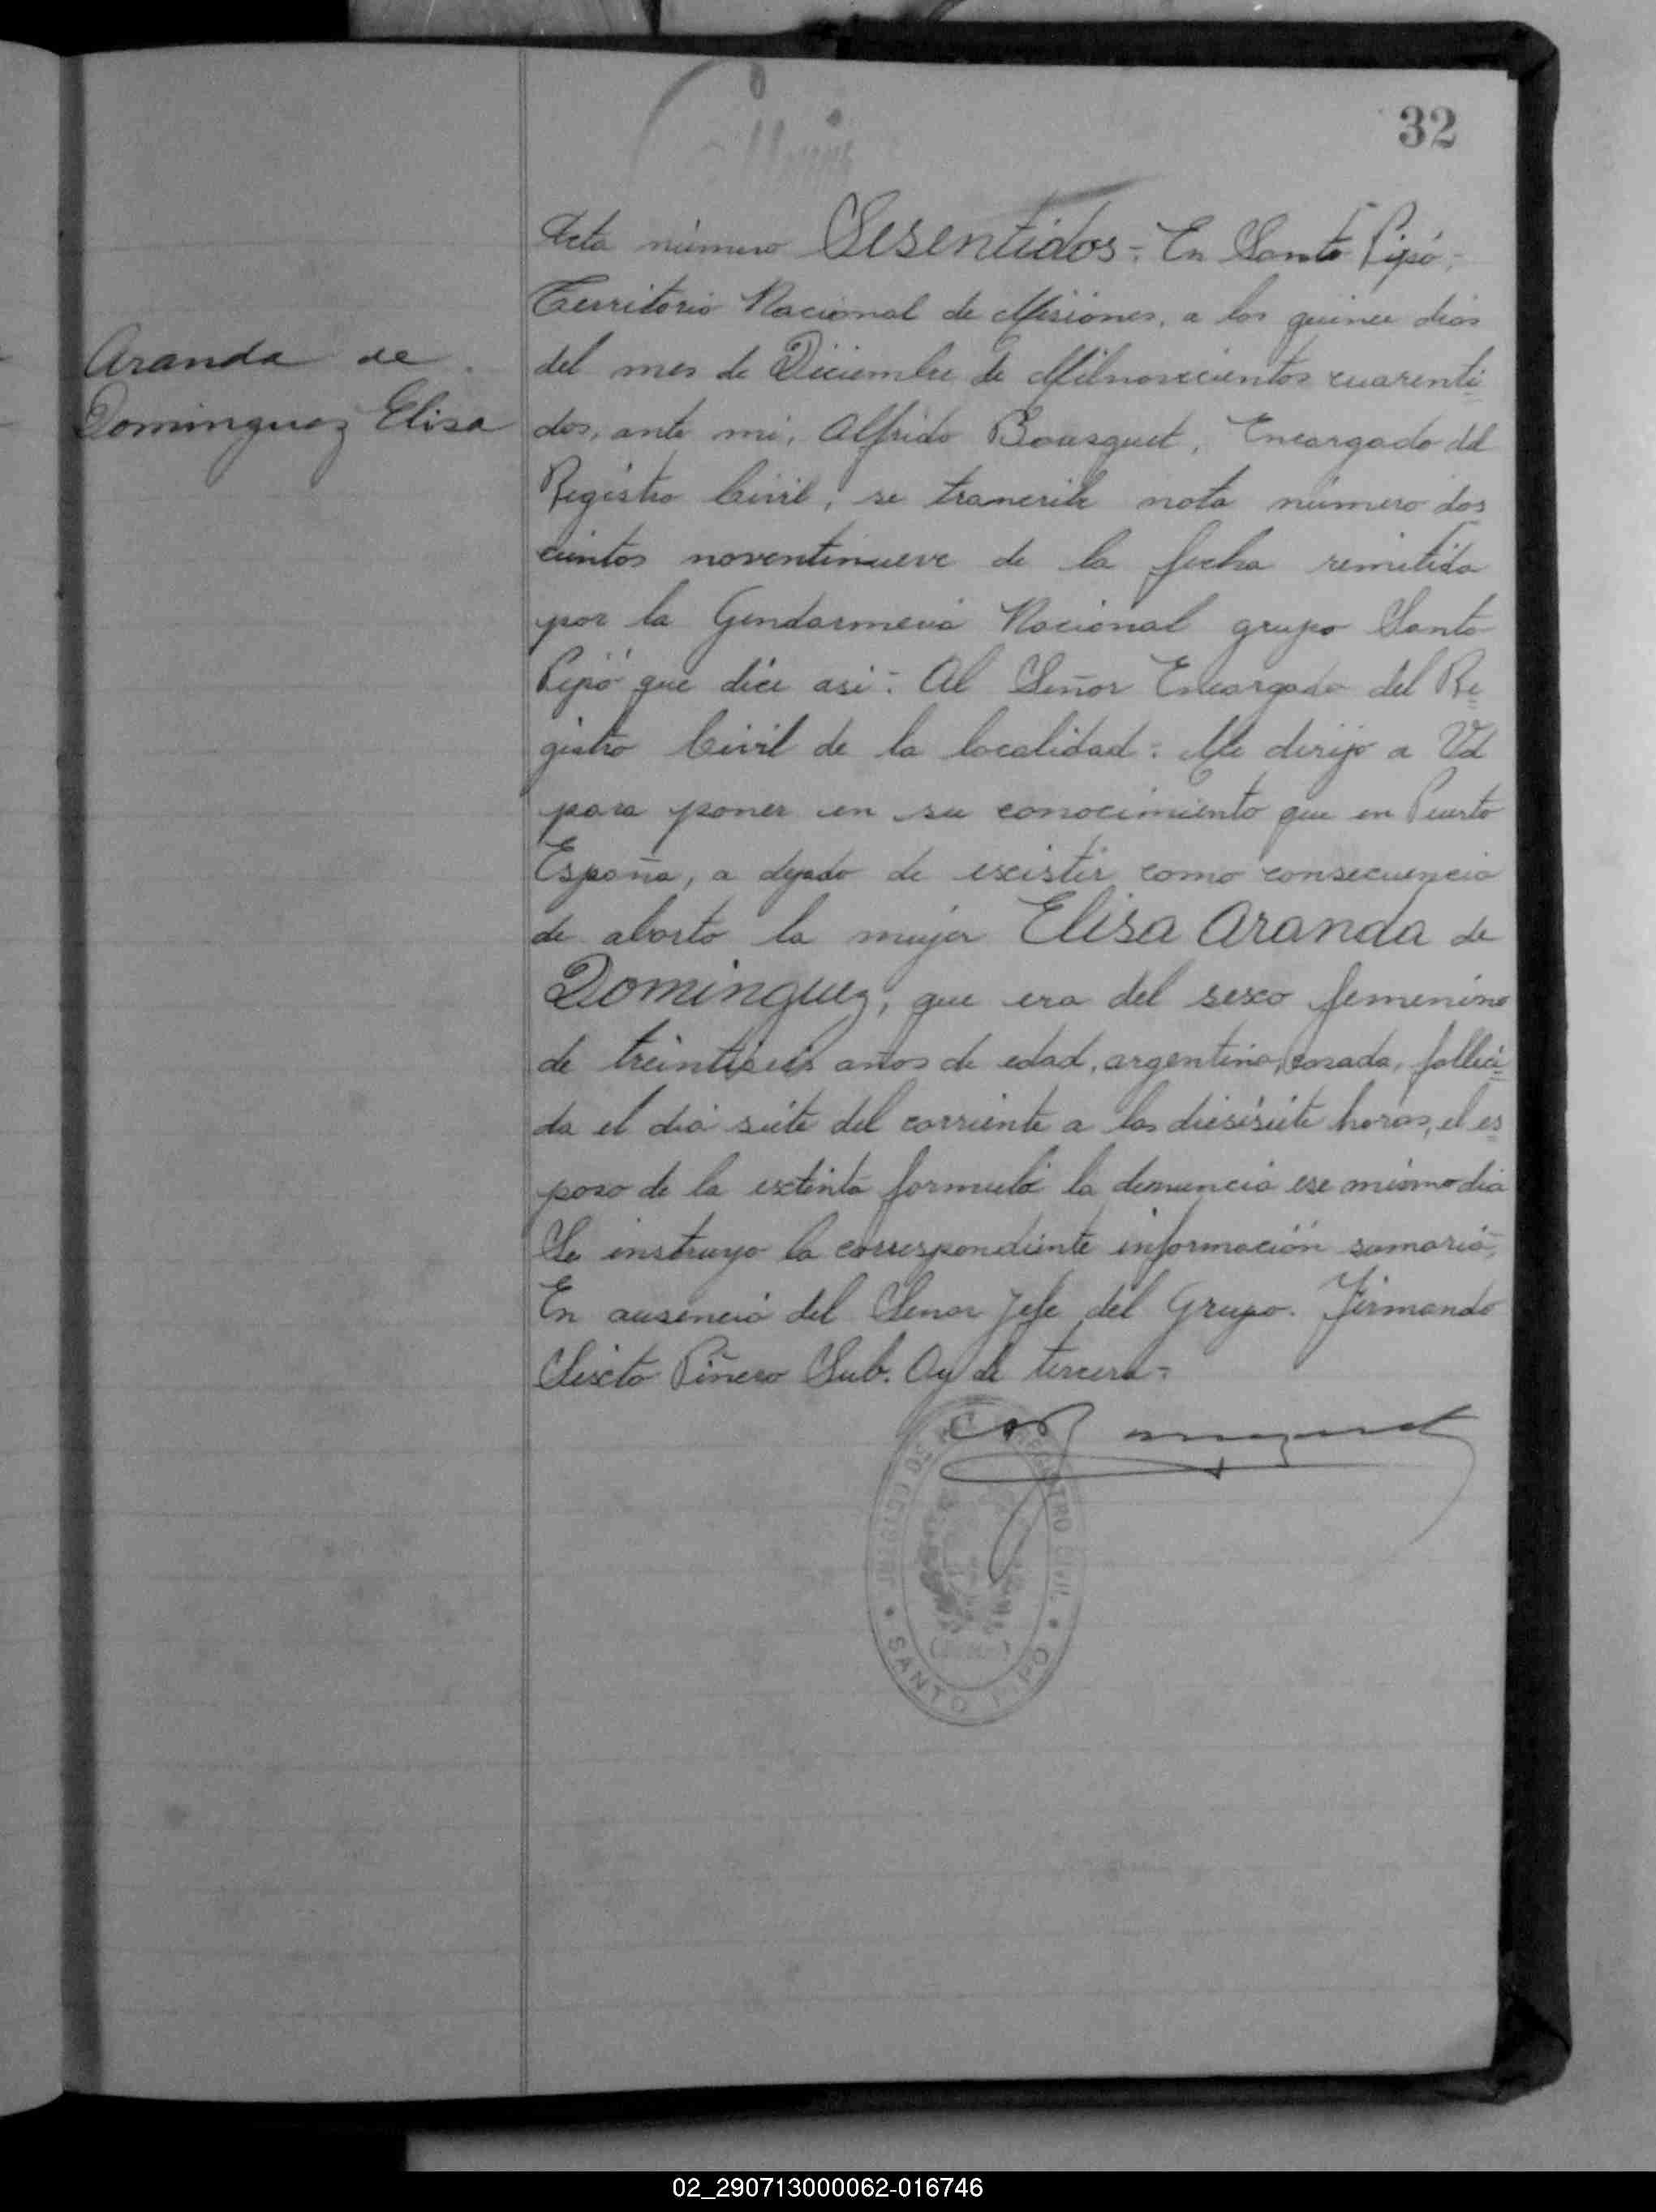 32
Acta número Sesentidos = En Santo Pipó,
Territorio Nacional de Misiones, a los quince dias
Aranda de
del mes de Diciembre de Milnovecientos cuarenti=
Dominguez Elisa
dos, ante mi, Alfredo Bousquet, Encargado del
Registro Civil, se trancribe nota número dos
cientos noventinueve de la fecha remitida
por la Gendarmeria Nacional grupo Santo
Pipó que dice asi = Al Señor Encargado del Re=
gistro Civil de la localidad = Me dirijo a Vd
para poner en su conocimiento que en Puerto
España, a dejado de excistir como consecuencia
de aborto la mujer Elisa Aranda de
Dominguez, que era del sexo femenino
de treintiseis años de edad, argentina, casada, falleci=
da el dia siete del corriente a las diesisiete horas, el es=
poso de la extinta formuló la denuncia ese mismo dia
Se instruyo la correspondiente información sumaria,
En ausencia del Senor Jefe del Grupo. Firmando
Sixto Piñero Sub. Ay de tercera =
REGISTRO CIVIL
SANTO PIPO
02_290713000062-016746